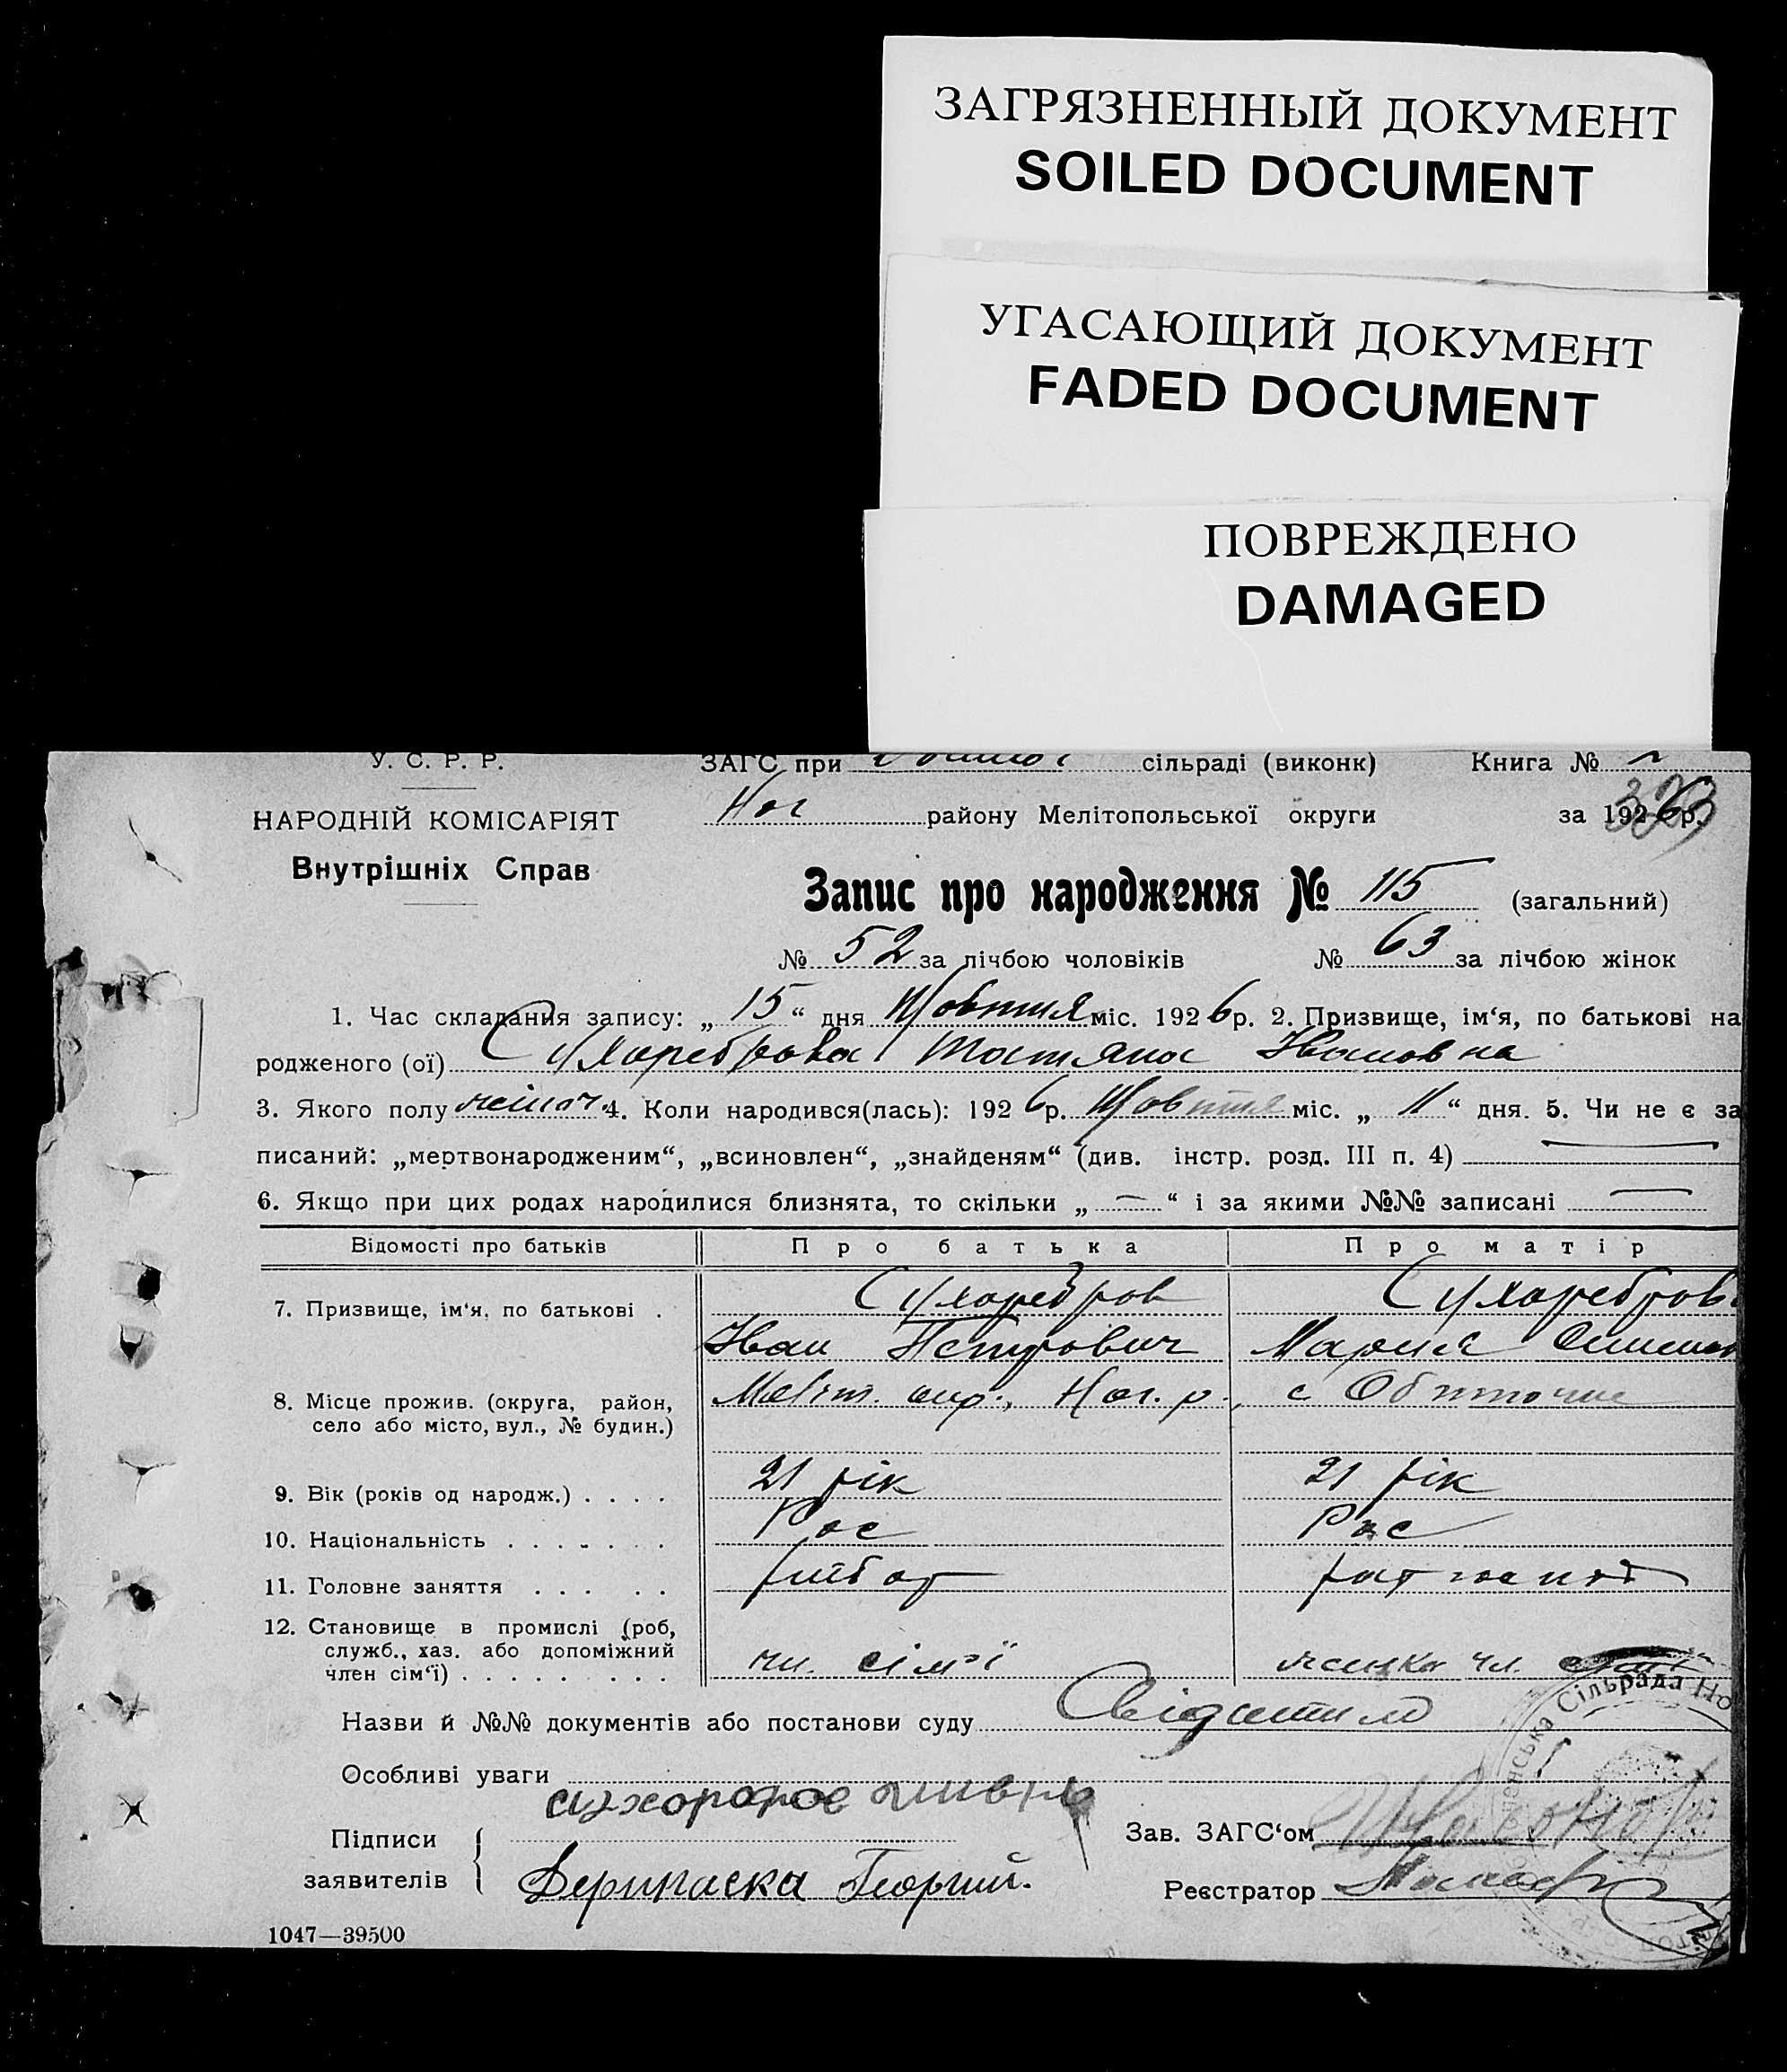 ЗАГРЯЗНЕННЫЙ ДОКУМЕНТ
SOILED DOCUMENT
УГАСАЮЩИЙ ДОКУМЕНТ
FADED DOCUMENT
ПОВРЕЖДЕНО
DAMAGED
У. С. Р. Р. ЗАГС при сільраді (виконк) Книга №
НАРОДНІЙ КОМІСАРІЯТ Ног району Мелітопольської округи за 1926 р.
Внутрішніх Справ
Запис про народження № 115 (загальний)
№ 52 за лічбою чоловіків № 63 за лічбою жінок
1. Час складання запису: „15“ дня Жовтня міс. 1926 р. 2. Призвище, ім‘я, по батькові на
родженого (ої) Сухореброва Татяна Ивановна
3. Якого полу жіноч 4. Коли народився(лась): 1926 р. Жовтня міс. „11“ дня. 5. Чи не є за
писаний: „мертвонародженим“, „всиновлен“, „знайденям“ (див. інстр. розд. III п. 4) —
6. Якщо при цих родах народилися близнята, то скільки „—“ і за якими №№ записані —
Відомості про батьків Про батька Про матір
7. Призвище, ім‘я, по батькові . Сухоребров Сухореброва
Иван Петрович Мария
8. Місце прожив. (округа, район, Меліт. окр., Ног. р., с Обиточне
село або місто, вул., № будин.)
9. Вік (років од народж.) . . . . 21 рік 21 рік
10. Національність . . . . . . . Рос Рос
11. Головне заняття . . . . .
12. Становище в промислі (роб,
служб., хаз. або допоміжний
член сім‘ї) . . . . . . . . чл. сім'ї жінка чл.
Назви й №№ документів або постанови суду
Особливі уваги
Підписи
заявителів Дерипаска Георгий.
Зав. ЗАГС‘ом
Реєстратор
Сільрада Но
1047—39500